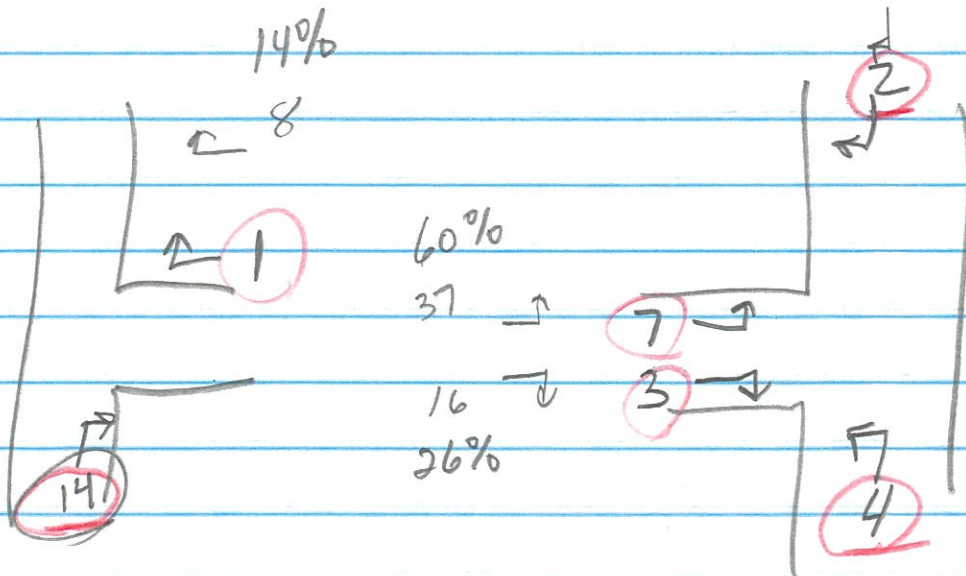 14%
2
8
1
60%
37
7
16
3
26%
14
4